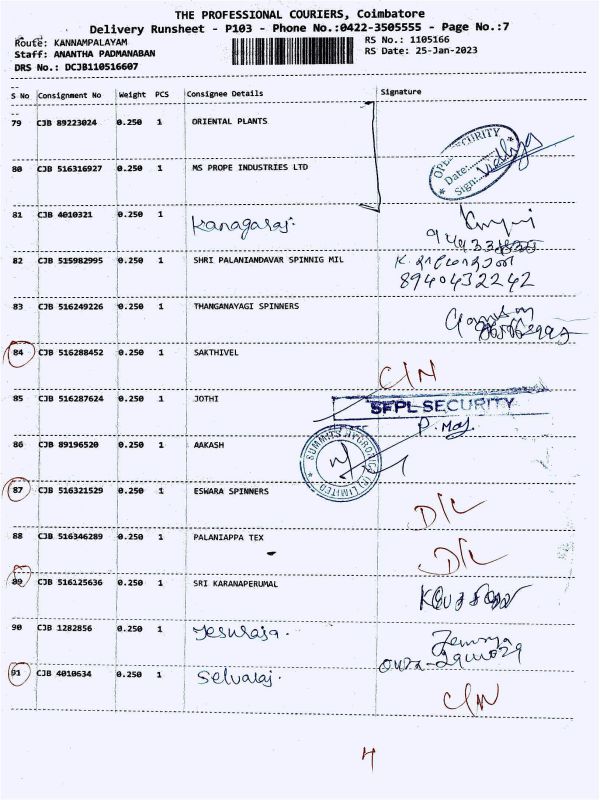 THE PROFESSIONAL COURIERS, Coimbatore
Delivery Runsheet - P103 - Phone No.:0422-3505555 - Page No.:7
Route: KANNAMPALAYAM RS No.: 1105166
Staff: ANANTHA PADMANABAN RS Date: 25-Jan-2023
DRS No.: DCJB110516607
S No Consignment No Weight PCS Consignee Details Signature
79 CJB 89223024 0.250 1 ORIENTAL PLANTS
80 CJB 516316927 0.250 1 MS PROPE INDUSTRIES LTD
SECURITY Date: Sign:
81 CJB 4010321 0.250 1 Kanagaraj.
82 CJB 515982995 0.250 1 SHRI PALANIANDAVAR SPINNIG MIL
8940432242
83 CJB 516249226 0.250 1 THANGANAYAGI SPINNERS
84 CJB 516288452 0.250 1 SAKTHIVEL
C/N
85 CJB 516287624 1 0.250 JOTHI
SFPL SECURITY
86 CJB 89196520 0.250 1 AAKASH
P. Moj
LIMITED
87 CJB 516321529 0.250 1 ESWARA SPINNERS
D/L
88 CJB 516346289 0.250 1 PALANIAPPA TEX
D/L
89 CJB 516125636 0.250 1 SRI KARANAPERUMAL
90 CJB 1282856 0.250 1 Jesuraja.
91 CJB 4010634 0.250 1 Selvaraj.
C/N
4